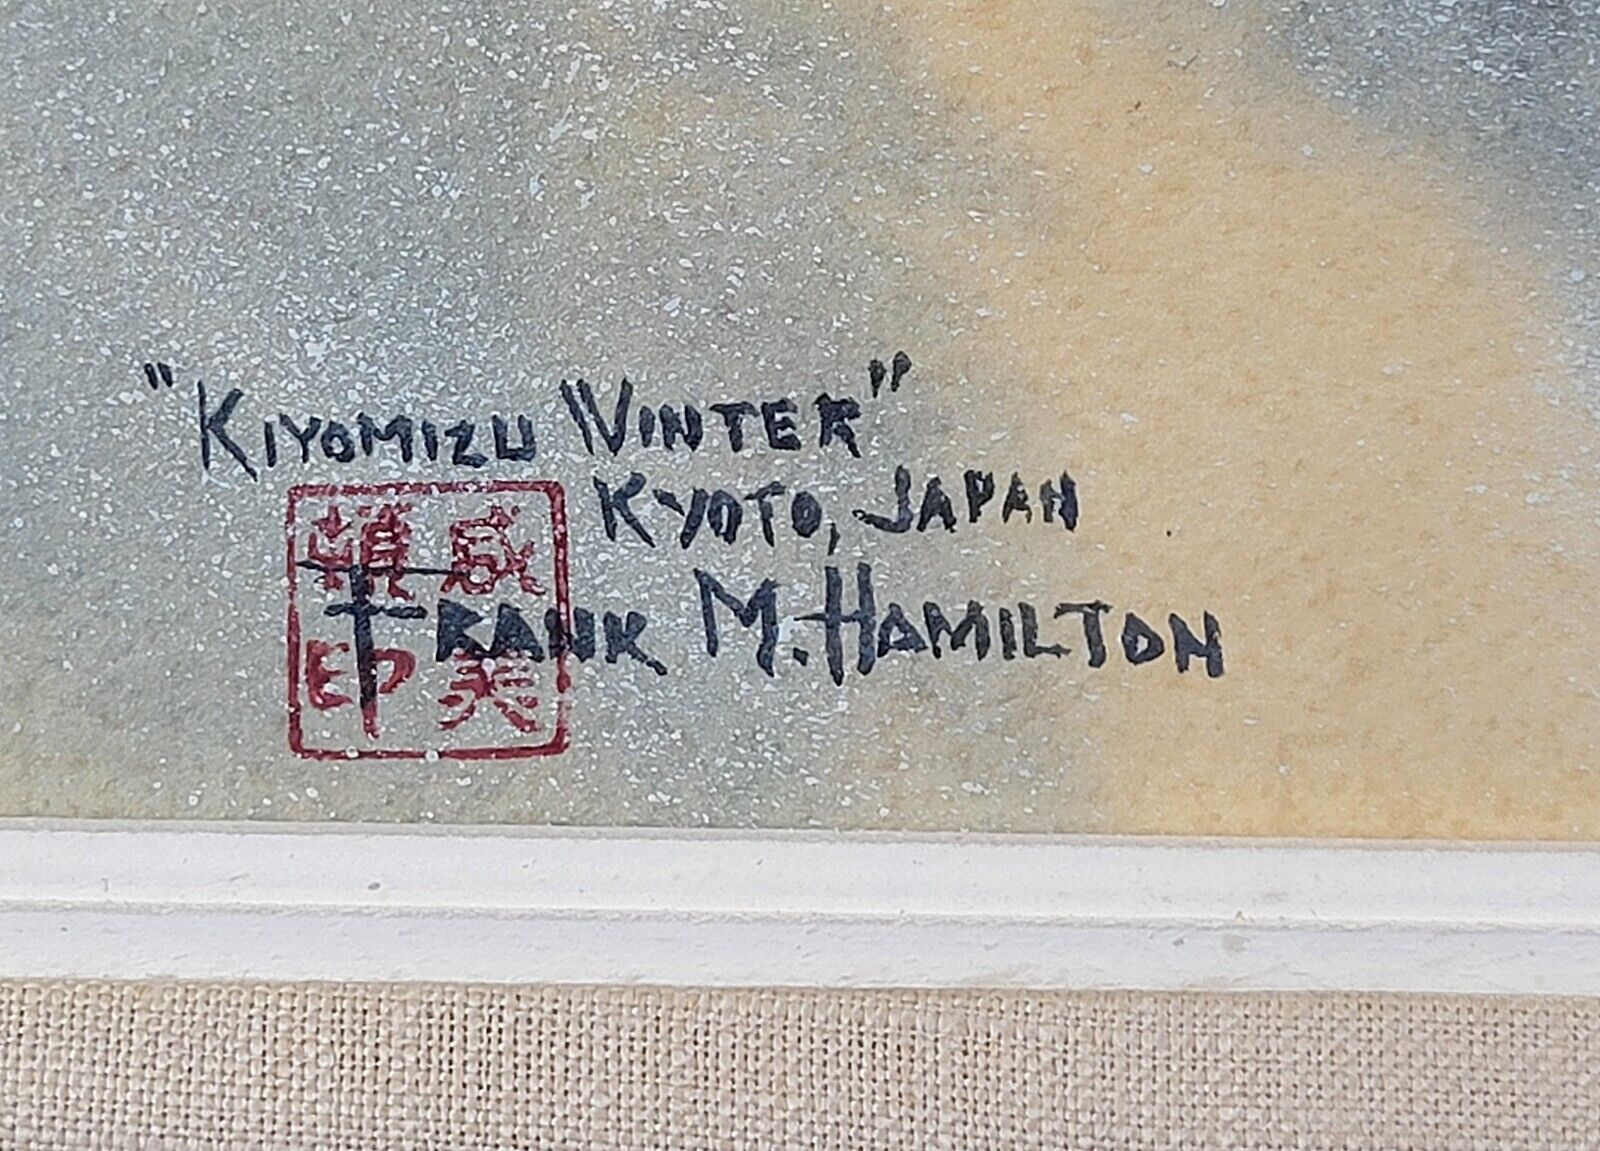 "KIYOMIZU WINTER"
KYOTO, JAPAN
FRANK M. HAMILTON
印